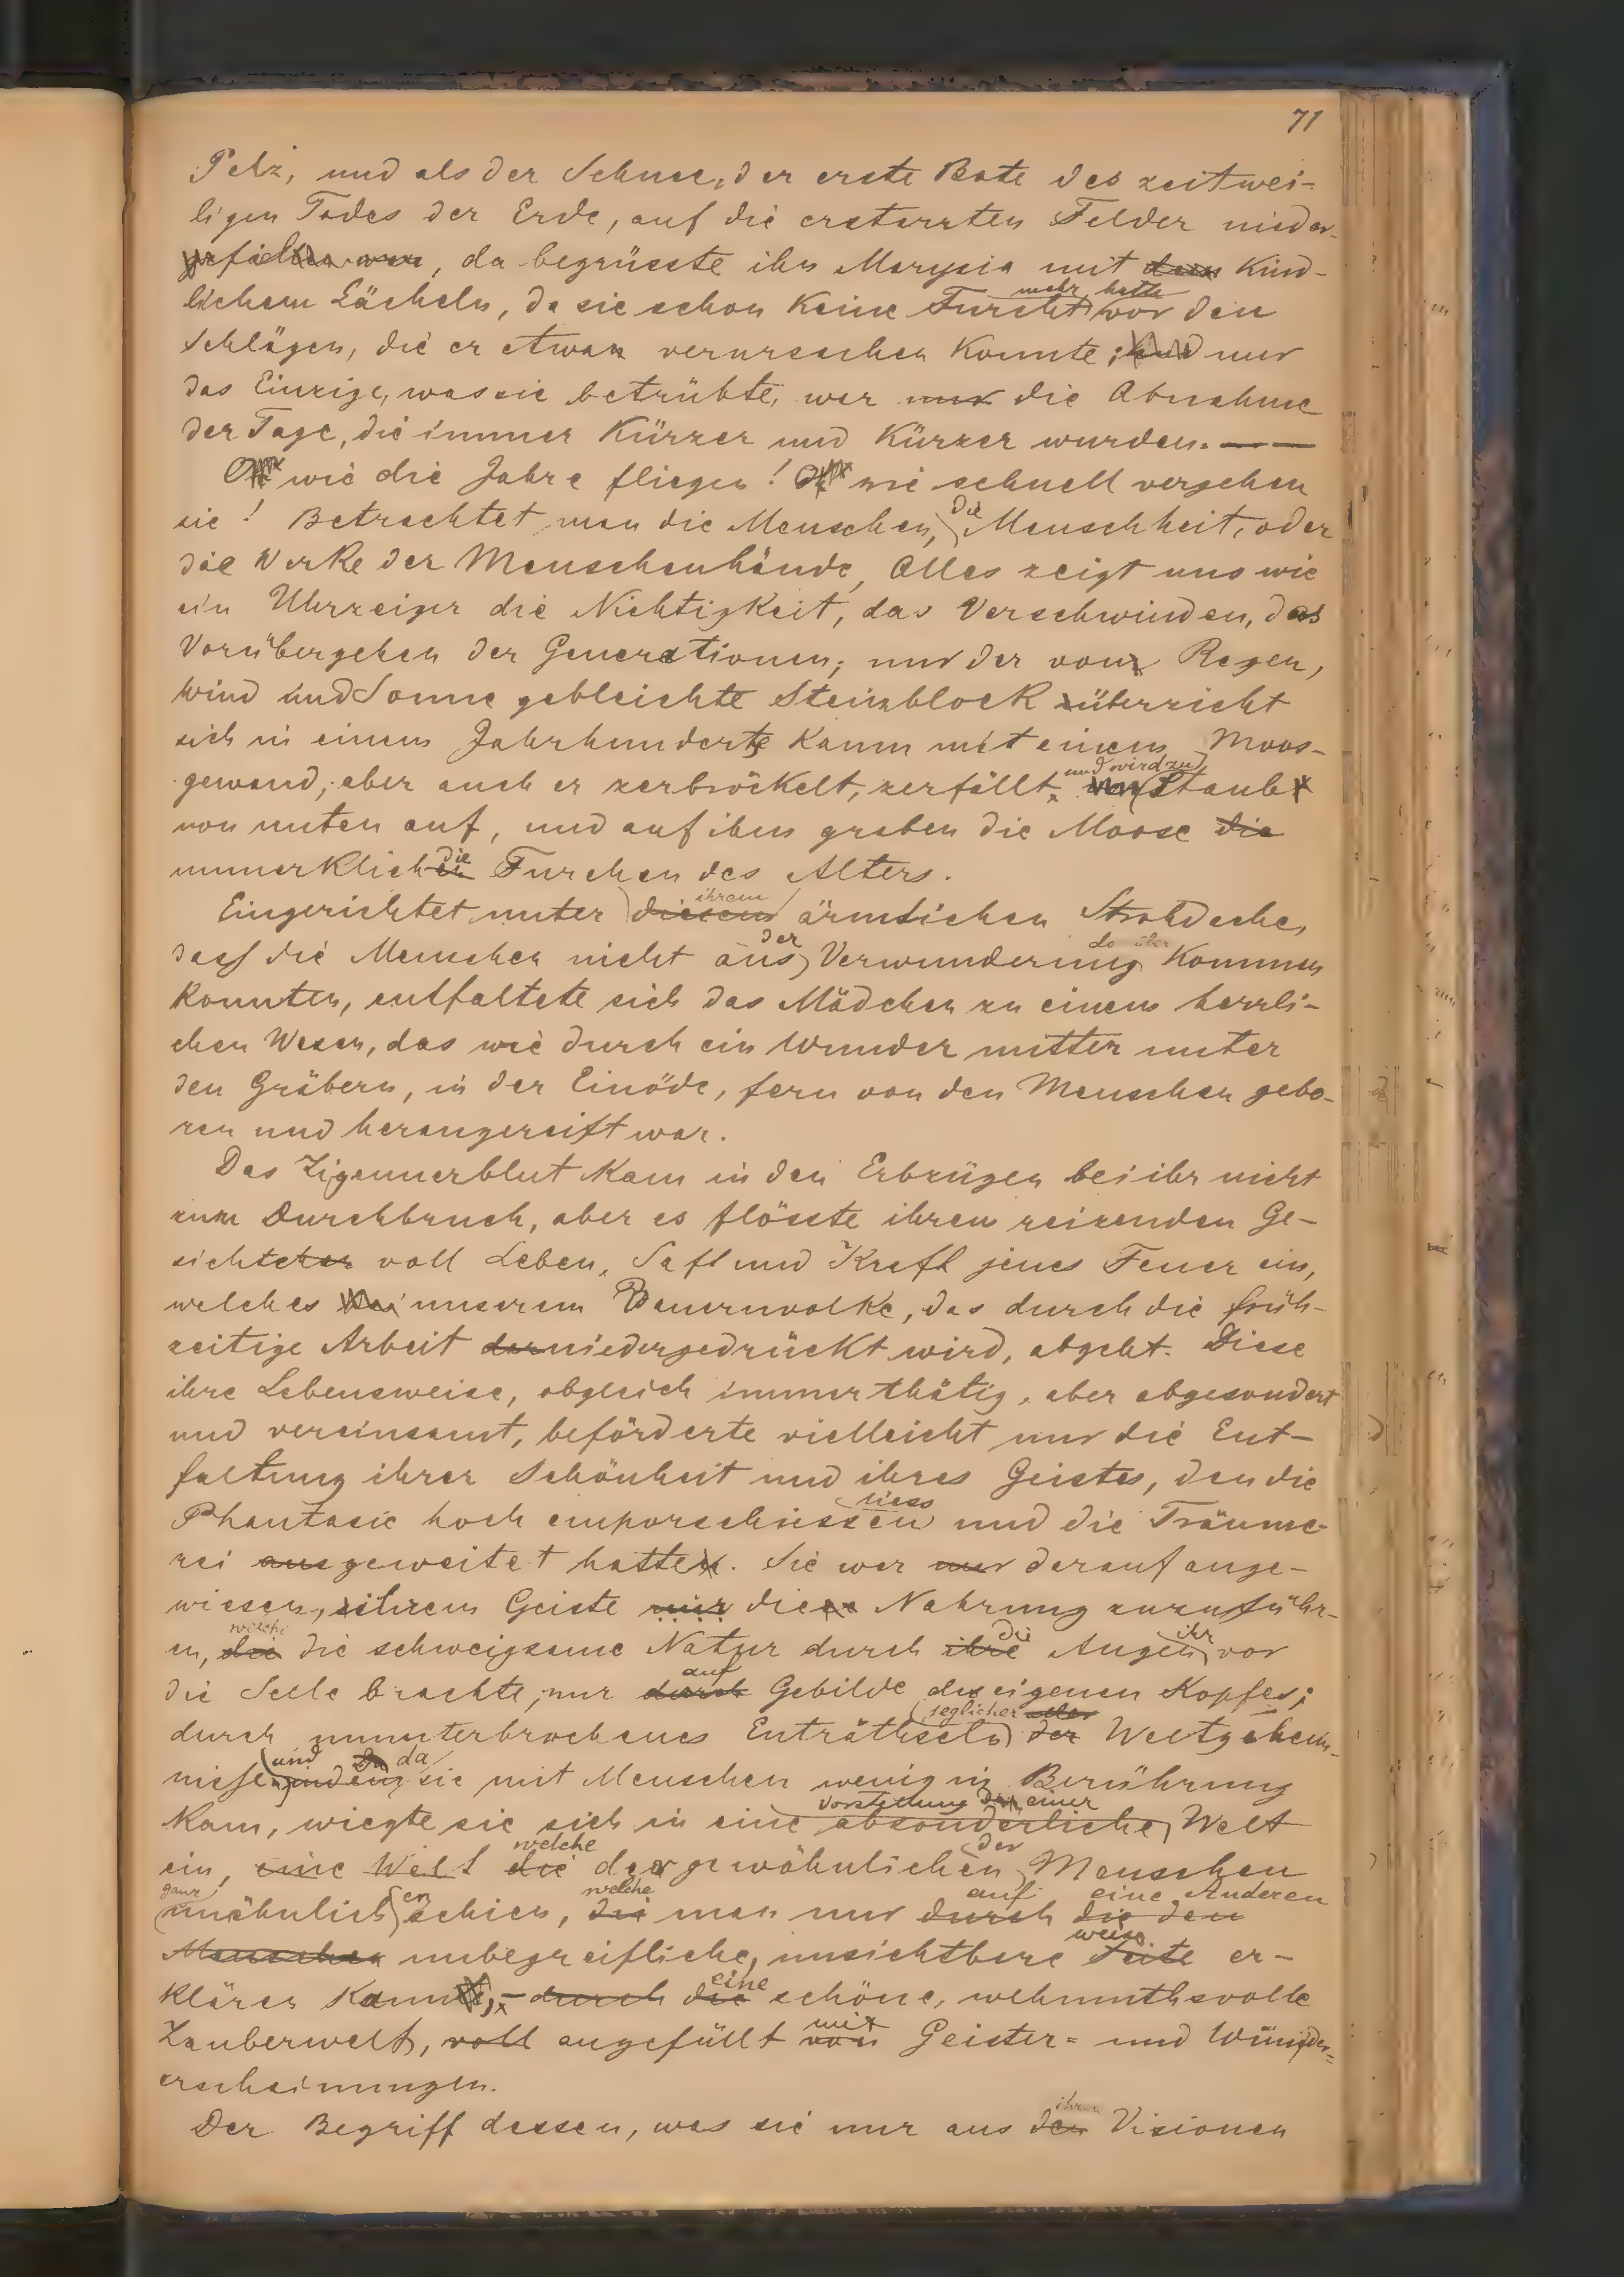 71
Pelz, und als der Schnee, der erste Bote des zeitwei-
ligen Todes der Erde, auf die erstarrten Felder nieder-
gefallen war, da begrüsste ihn Marysia mit dem kind-
mehr hatte
lichem Lächeln, da sie schon keine Furcht vor den
Schlägen, die er etwan verursachen konnte; und nur
das Einzige, was sie betrübte, war nur die Abnahme
der Tage, die immer kürzer und kürzer wurden. — —
O wie die Jahre fliegen! O wie schnell vergehen
die
sie! Betrachtet man die Menschen, Menschheit, oder
die Werke der Menschenhände, Alles zeigt uns wie
ein Uhrzeiger die Nichtigkeit, das Verschwinden, das
Vorübergehen der Generationen; nur der vom Regen,
Wind und Sonne gebleichte Steinblock überzieht
sich in einem Jahrhunderte kaum mit einem Moos-
und wird zu
gewand; aber auch er zerbröckelt, zerfällt, Staub
von unten auf, und auf ihm graben die Moose die
die
unmerklichen Furchen des Alters.
ihrem
Eingerichtet unter diesem ärmlichen Strohdache,
der do über
dass die Menschen nicht aus Verwunderung kommen
konnten, entfaltete sich das Mädchen zu einem herrli-
chen Wesen, das wie durch ein Wunder mitten unter
den Gräbern, in der Einöde, fern von den Menschen gebo-
ren und herangereift war.
Das Zigeunerblut kam in den Erbzügen bei ihr nicht
zum Durchbruch, aber es flösste ihrem reizenden Ge-
sichtchen voll Leben, Saft und Kraft jenes Feuer ein,
welches bei unserem Bauernvolke, das durch die früh-
zeitige Arbeit darniedergedrückt wird, abgeht. Diese
ihre Lebensweise, obgleich immer thätig, aber abgesondert
und vereinsamt, beförderte vielleicht nur die Ent-
faltung ihrer Schönheit und ihres Geistes, den die
liess
Phantasie hoch emporschiessen und die Träume-
rei ausgeweitet hatte. Sie war nur darauf ange-
wiesen, ihrem Geiste nur diese Nahrung zuzuführ-
welche die ihr
en, die die schweigsame Natur durch ihre Augen vor
auf
die Seele brachte, nur durch Gebilde des eigenen Kopfes;
jeglicher aller
durch ununterbrochenes Enträthseln der Weltgeheim-
und Da da
nisse, indem sie mit Menschen wenig in Berührung
Vorstellung einer
kam, wiegte sie sich in eine absonderliche Welt
welche der
ein, eine Welt die der gewöhnlichen Menschen
ganz en welche auf eine Anderen
unähnlich schien, die man nur durch die den
weise
Menschen unbegreifliche, unsichtbare Seite er-
eine
klären kann, - durch die schöne, wehmuthsvolle
mit
Zauberwelt, voll angefüllt von Geister- und Wunder-
erscheinungen.
ihren
Der Begriff dessen, was sie nur aus den Visionen